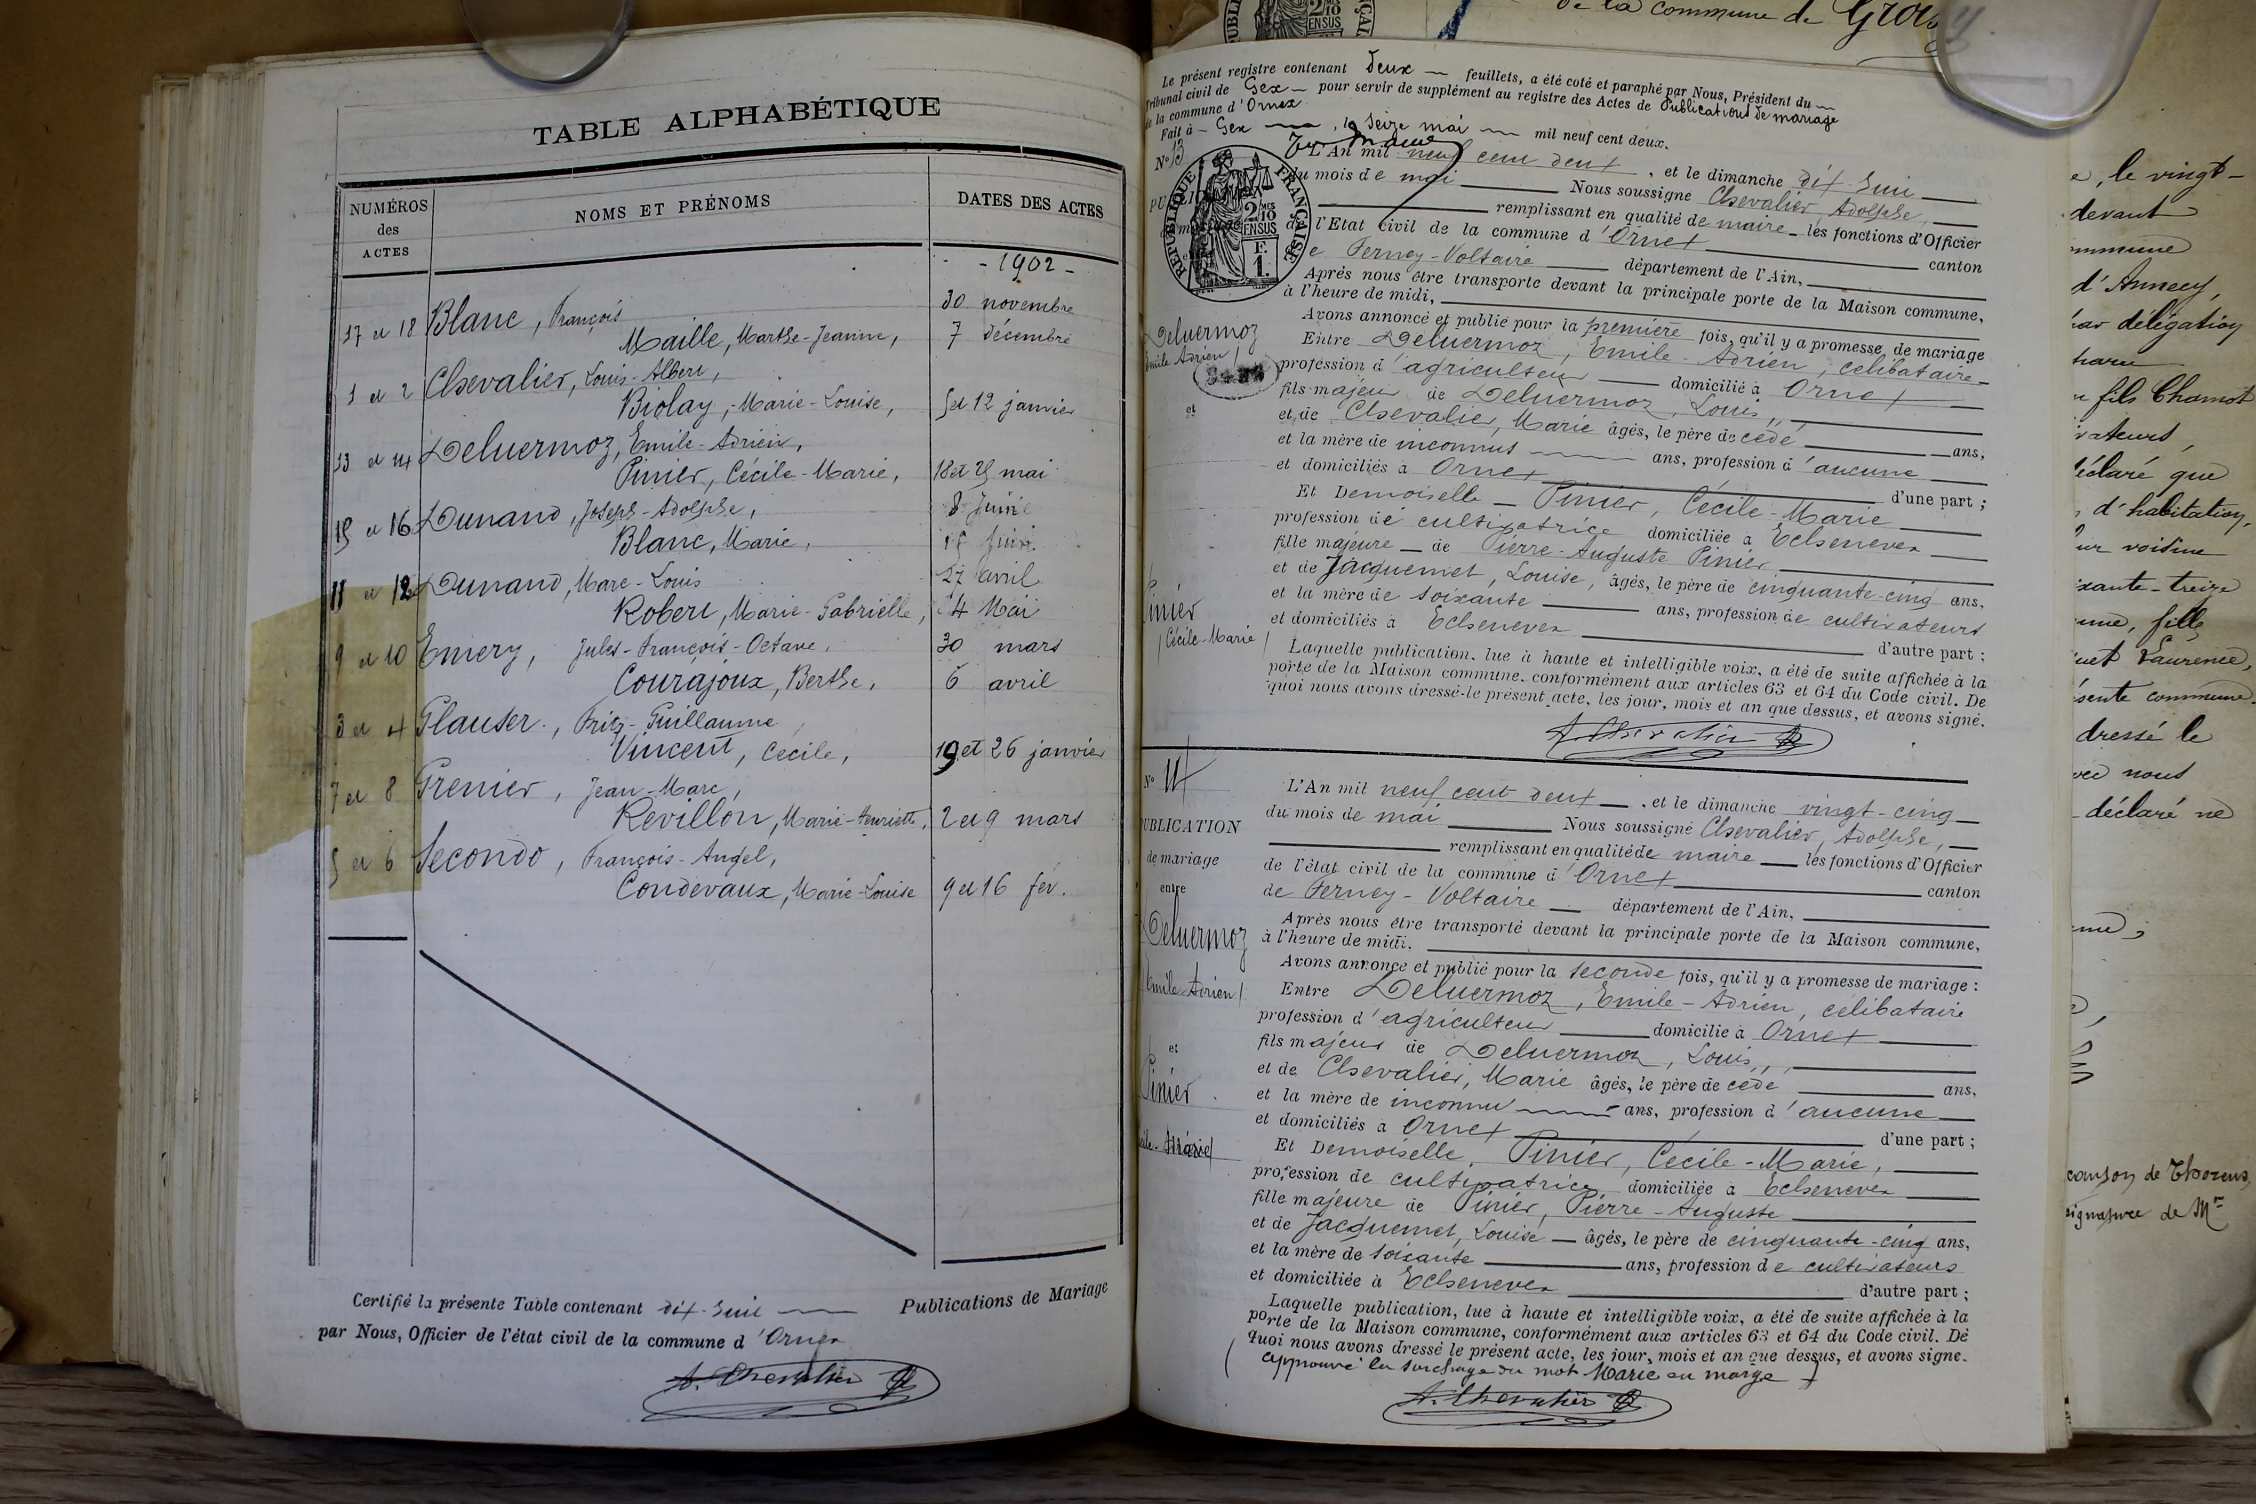 TABLE ALPHABÉTIQUE
NUMÉROS des ACTES
NOMS ET PRÉNOMS
DATES DES ACTES
- 1902 -
17 et 18 Blanc, François 30 novembre
Maille, Marthe-Jeanne, 7 décembre
1 et 2 Chevalier, Louis-Albert,
Biolay, Marie-Louise, 5 et 12 janvier
13 et 14 Deluermoz, Emile-Adrien,
Pinier, Cécile-Marie, 18 et 25 mai
15 et 16 Dunand, Joseph-Adolphe, 8 Juin
Blanc, Marie, juin
11 et 12 Dunand, Marc-Louis 27 avril
Robert, Marie-Gabrielle, 4 Mai
9 et 10 Emery, Jules-François-Octave, 30 mars
Courajoux, Berthe, 6 avril
3 et 4 Glauser, Fritz-Guillaume,
Vincent, Cécile, 19 et 26 janvier
7 et 8 Grenier, Jean-Marc,
Revillon, Marie-Henriette, 2 et 9 mars
5 et 6 Secondo, François-Angel,
Condevaux, Marie-Louise 9 et 16 fév.
Certifié la présente Table contenant dix-huit Publications de Mariage
par Nous, Officier de l'état civil de la commune d'Ornex
A. Chevalier
de la commune de
Le présent registre contenant deux feuillets, a été coté et paraphé par Nous, Président du
Tribunal civil de Gex pour servir de supplément au registre des Actes de Publications de mariage
de la commune d'Ornex
Fait à Gex, le seize mai mil neuf cent deux.
N° 13
RÉPUBLIQUE FRANÇAISE
2/10 EN SUS
1 F.
L'An mil neuf cent deux, et le dimanche dix-huit
du mois de mai Nous soussigné Chevalier, Adolphe,
remplissant en qualité de maire les fonctions d'Officier
de l'Etat civil de la commune d'Ornex canton
de Ferney-Voltaire département de l'Ain,
Après nous être transporté devant la principale porte de la Maison commune,
à l'heure de midi,
Avons annoncé et publié pour la première fois, qu'il y a promesse de mariage
Deluermoz
Emile Adrien
et
Pinier
(Cécile-Marie)
Entre Deluermoz, Emile-Adrien, célibataire
profession d'agriculteur domicilié à Ornex
fils majeur de Deluermoz, Louis,
et de Chevalier, Marie âgés, le père décédé ans,
et la mère de inconnus ans, profession d'aucune
et domiciliés à Ornex d'une part ;
Et Demoiselle Pinier, Cécile-Marie
profession de cultivatrice domiciliée à Echenevex
fille majeure de Pierre-Auguste Pinier
et de Jacquemet, Louise, âgés, le père de cinquante-cinq ans,
et la mère de soixante ans, profession de cultivateurs
et domiciliés à Echenevex d'autre part ;
Laquelle publication, lue à haute et intelligible voix, a été de suite affichée à la
porte de la Maison commune, conformément aux articles 63 et 64 du Code civil. De
quoi nous avons dressé le présent acte, les jour, mois et an que dessus, et avons signé.
A. Chevalier
N° 14
PUBLICATION
de mariage
entre
Deluermoz
Emile Adrien)
et
Pinier
Marie)
L'An mil neuf cent deux, et le dimanche vingt-cinq
du mois de mai Nous soussigné Chevalier, Adolphe,
remplissant en qualité de maire les fonctions d'Officier
de l'état civil de la commune d'Ornex canton
de Ferney-Voltaire département de l'Ain,
Après nous être transporté devant la principale porte de la Maison commune,
à l'heure de midi,
Avons annoncé et publié pour la seconde fois, qu'il y a promesse de mariage :
Entre Deluermoz, Emile-Adrien, célibataire
profession d'agriculteur domicilié à Ornex
fils majeur de Deluermoz, Louis,
et de Chevalier, Marie âgés, le père décédé ans,
et la mère de inconnu ans, profession d'aucune
et domiciliés à Ornex d'une part ;
Et Demoiselle Pinier, Cécile-Marie,
profession de cultivatrice domiciliée à Echenevex
fille majeure de Pinier, Pierre-Auguste
et de Jacquemet, Louise âgés, le père de cinquante-cinq ans,
et la mère de soixante ans, profession de cultivateurs
et domiciliée à Echenevex d'autre part ;
Laquelle publication, lue à haute et intelligible voix, a été de suite affichée à la
porte de la Maison commune, conformément aux articles 63 et 64 du Code civil. De
quoi nous avons dressé le présent acte, les jour, mois et an que dessus, et avons signé.
(approuvé la surcharge du mot Marie en marge)
A. Chevalier
le vingt-
devant
d'Annecy,
délégation
fils Chamot
déclaré que
d'habitation,
voisine
fille
Laurence,
commune.
dressé le
nous
déclaré ne
de Thorens,
signature de Mr